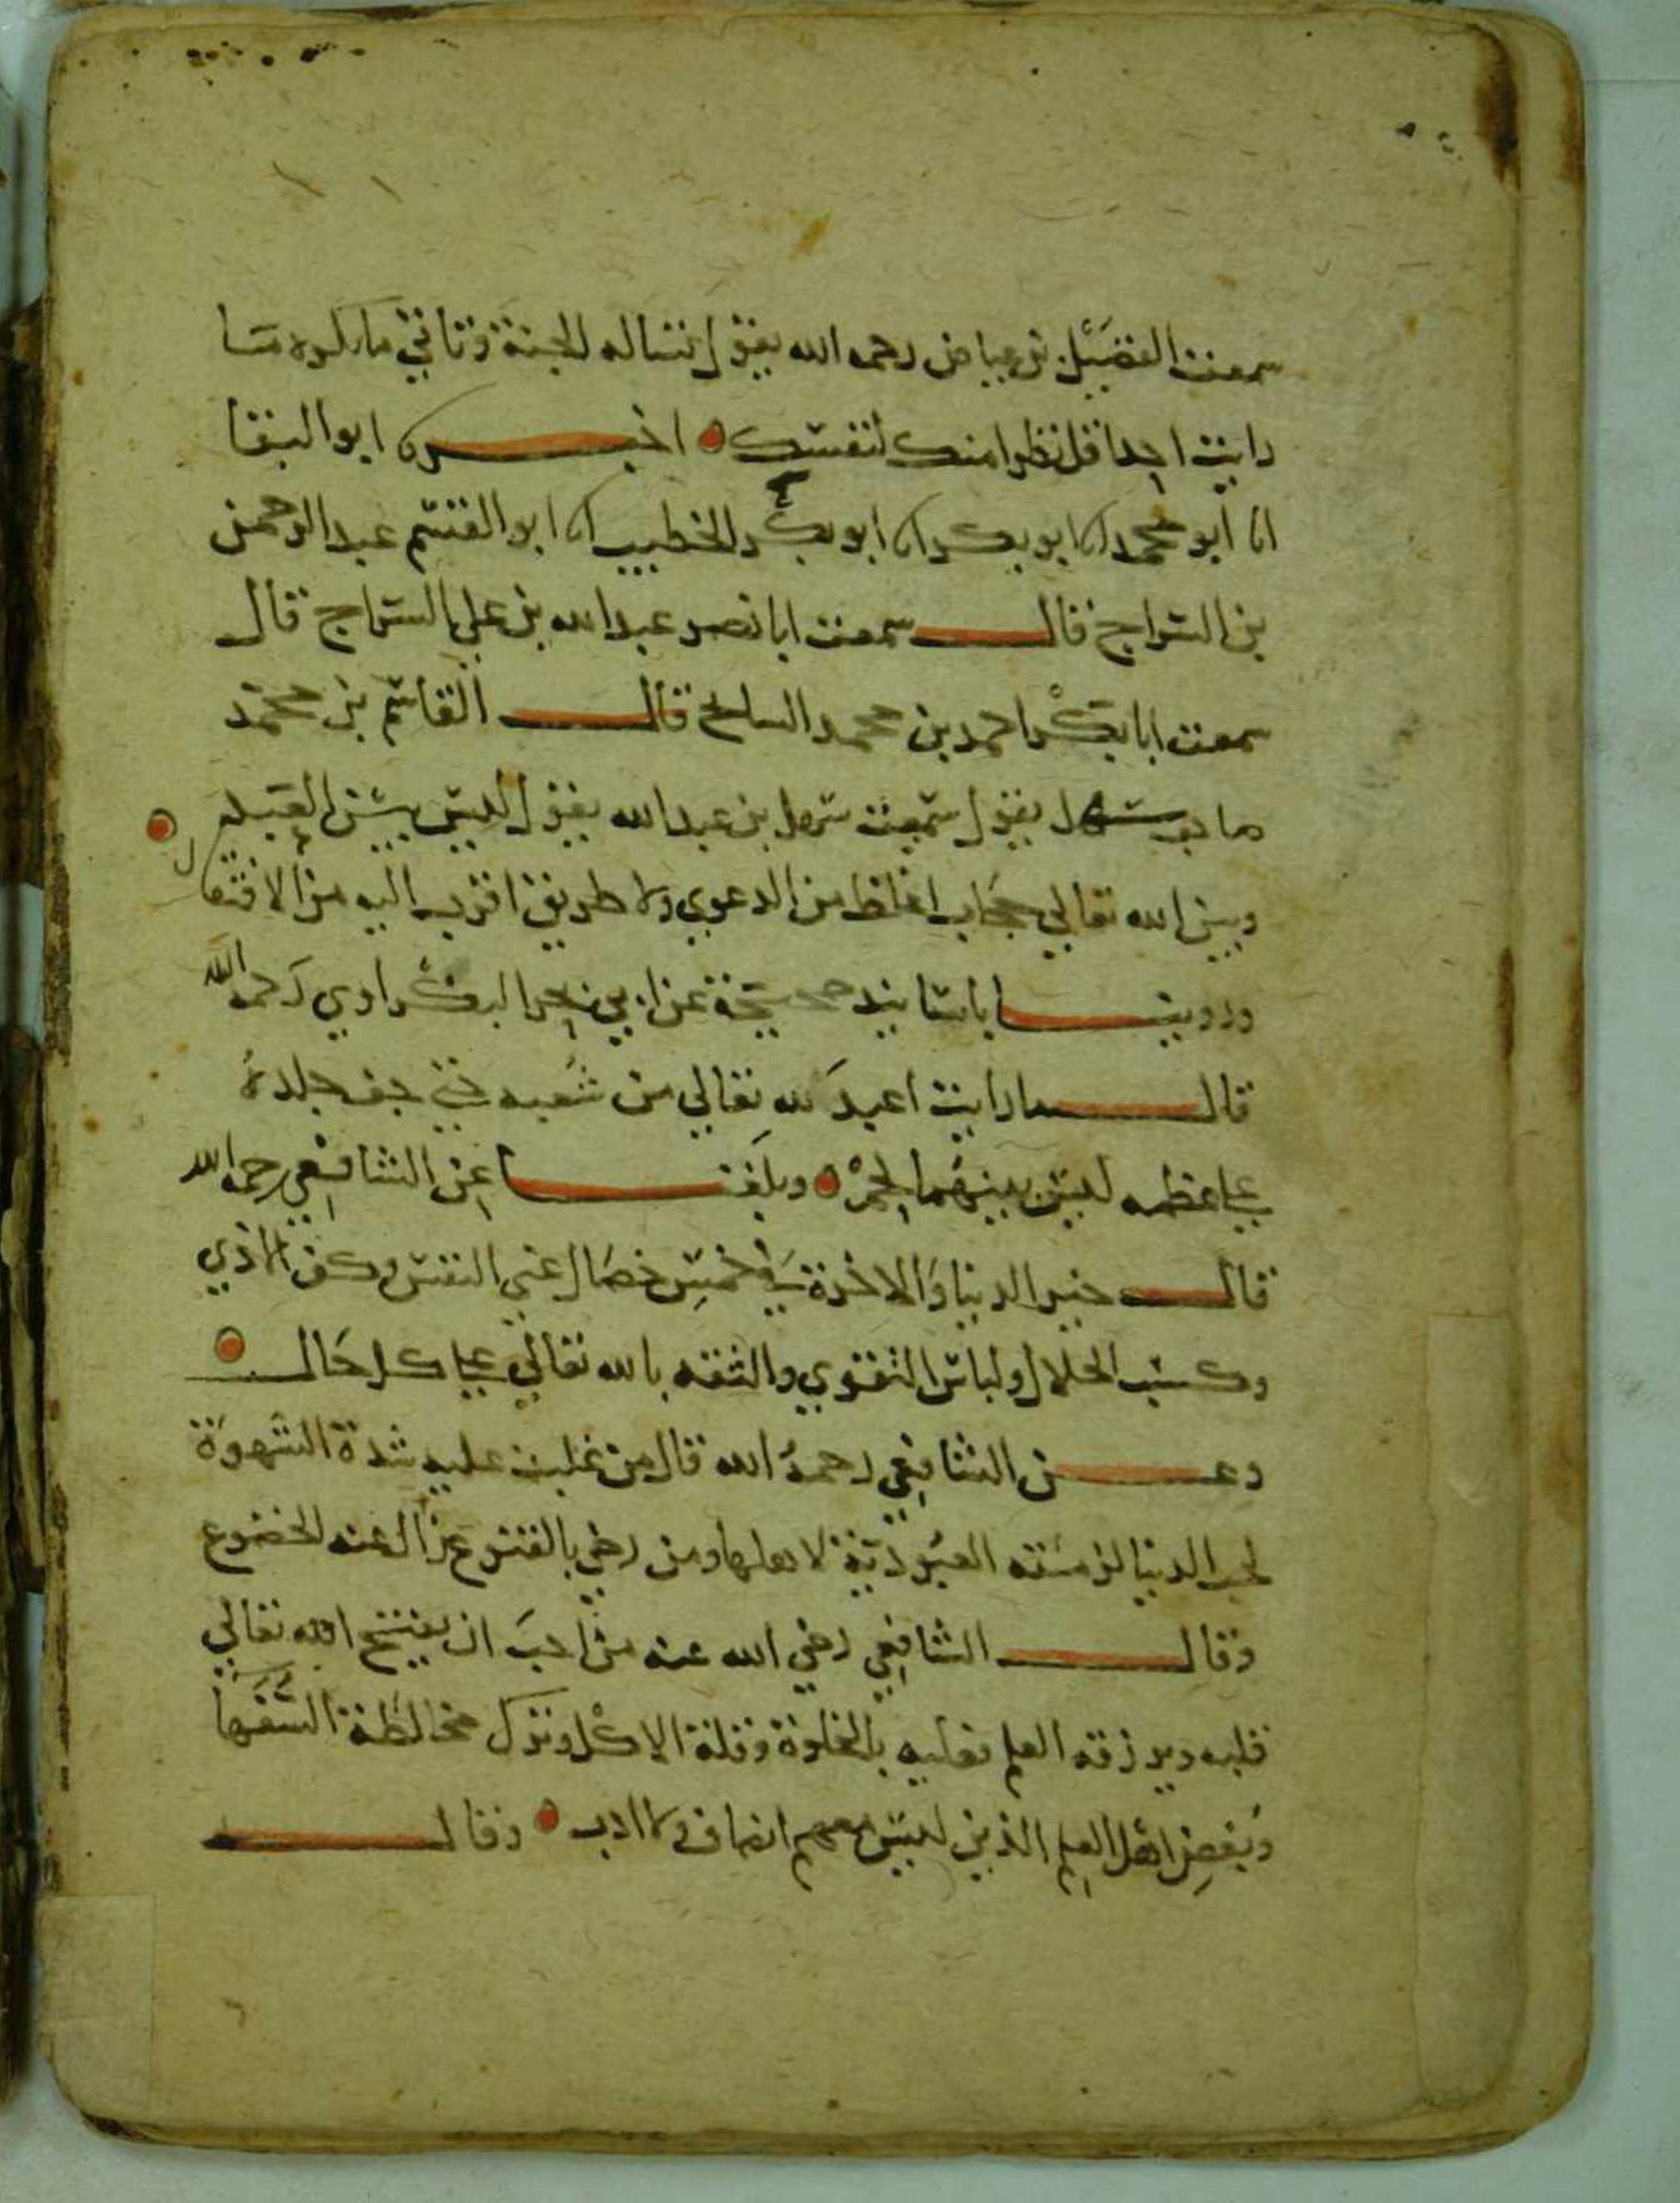 سمعت الفضيل بن عياض رحمه الله يقول تساله الجنة وتاتي ما يكره ما
رايت احدا اقل نظرا منك لنفسك اخبرنا ابو البقا
انا ابو محمد انا ابو بكر انا ابو بكر الخطيب انا ابو القسم عبد الرحمن
بن السراج قال سمعت ابا نصر عبد الله بن علي السراج قال
سمعت ابا بكر احمد بن محمد السايح قال القاسم بن محمد
صاحب سهل يقول سمعت سهل بن عبد الله يقول ليس بين العبد
وبين الله تعالي حجاب اغلظ من الدعوي ولا طريق اقرب اليه من الافتقار
وروينا باسانيد صحيحة عن ابي بحر البكراوي رحمه الله
قال ما رايت اعبد لله تعالي من شعبه حتي جف جلده
علي عظمه ليس بينهما لحم وبلغنا عن الشافعي رحمه الله
قال خير الدنيا والاخرة في خمس خصال غني النفس وكف الاذي
وكسب الحلال ولباس التقوي والثقه بالله تعالي علي كل حال
وعن الشافعي رحمه الله قال من غلبت عليه شدة الشهوة
لحب الدنيا لزمته العبودية لاهلها ومن رضي بالقنوع زال عنه الخضوع
وقال الشافعي رضي الله عنه من احب ان يفتح الله تعالي
قلبه ويرزقه العلم فعليه بالخلوة وقلة الاكل وترك مخالطة السفها
وبغض اهل العلم الذين ليس معهم انصاف ولا ادب وقال